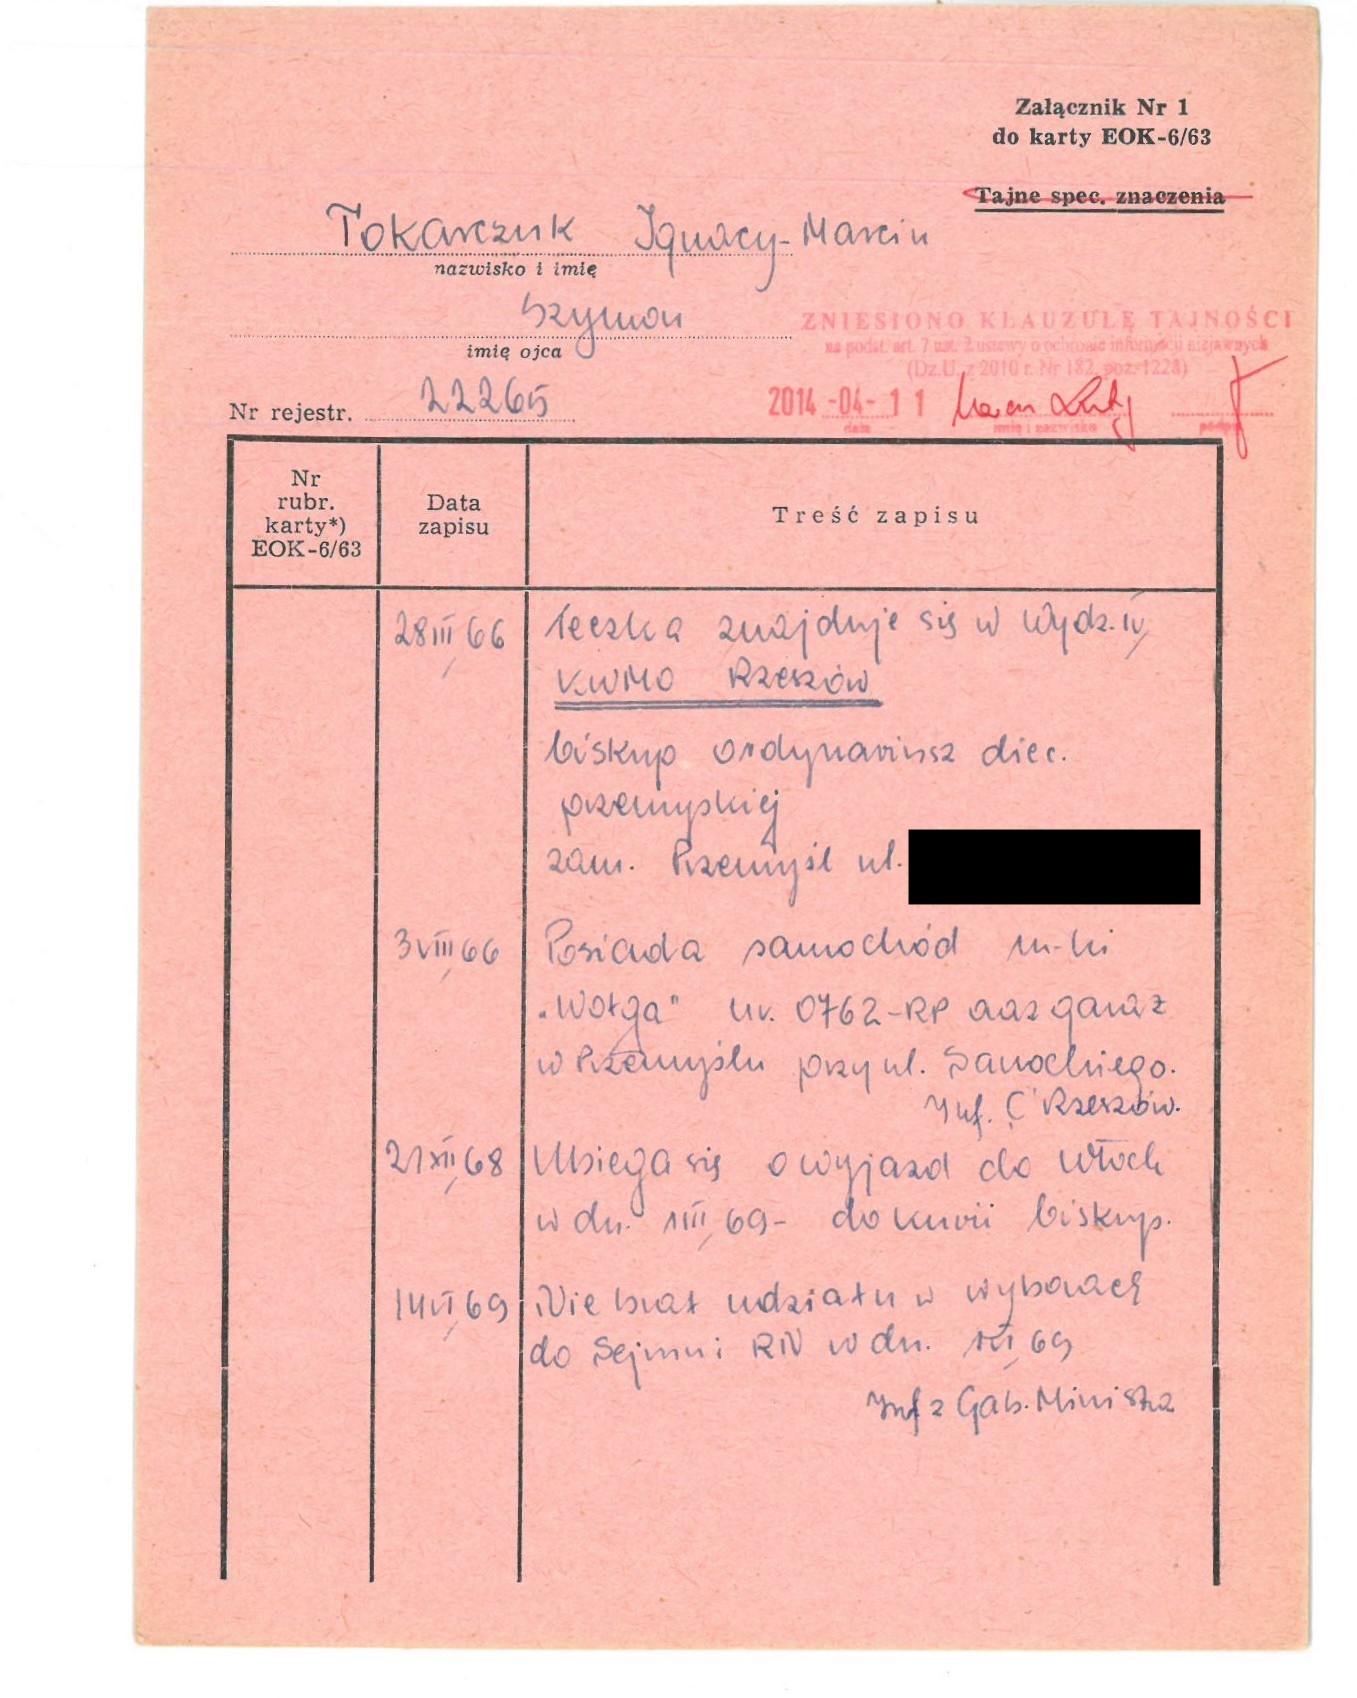 Załącznik Nr 1
do karty EOK-6/63
Tajne spec. znaczenia
Tokarczuk Ignacy-Marcin
nazwisko i imię
Szymon
imię ojca
ZNIESIONO KLAUZULĘ TAJNOŚCI
na podst. art. 7 ust. 2 ustawy o ochronie informacji niejawnych
(Dz.U. z 2010 r. Nr 182, poz. 1228)
Nr rejestr. 22265
2014 -04- 11
data imię i nazwisko podpis
Nr rubr. karty*) EOK-6/63
Data zapisu
Treść zapisu
28 III, 66 Teczka znajduje się w Wydz. IV,
KWMO Rzeszów
biskup ordynariusz diec.
przemyskiej
zam. Przemyśl ul.
3 VIII, 66 Posiada samochód m-ki
„Wołga" nr. 0762-RP garaż
w Przemyślu przy ul. Sanockiego.
Inf. "C" Rzeszów.
21 XII, 68 Ubiega się o wyjazd do Włoch
w dn. 1 III, 69- do kurii biskup.
14 VI, 69 Nie brał udziału w wyborach
do Sejmu i RN w dn. 1 VI, 69
Inf z Gab. Ministra